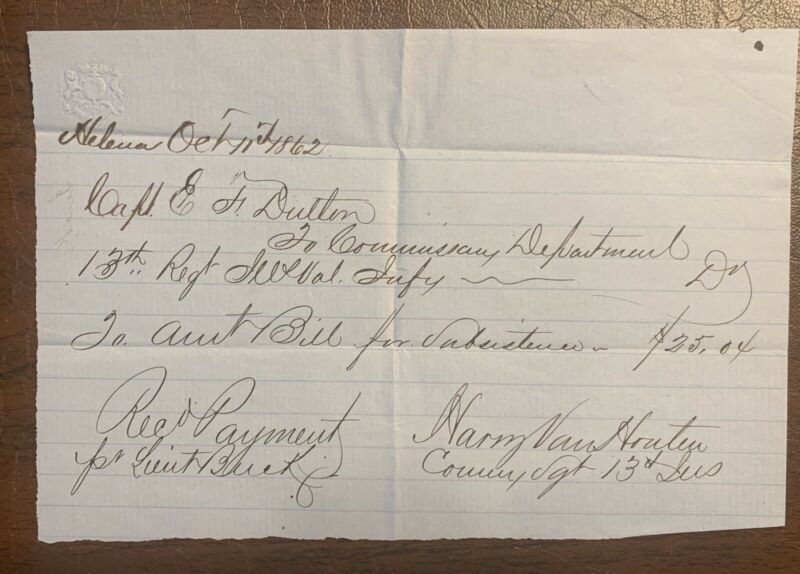 Helena Oct 11th 1862
Capt. E. F. Dutton
To Commissary Department
13th Regt Ills Vol. Infy Dr
To amt Bill for Subsistence $25.04
Recd Payment
pr Lieut Buck
Harry Van Houten
Commy Sgt 13th Ills